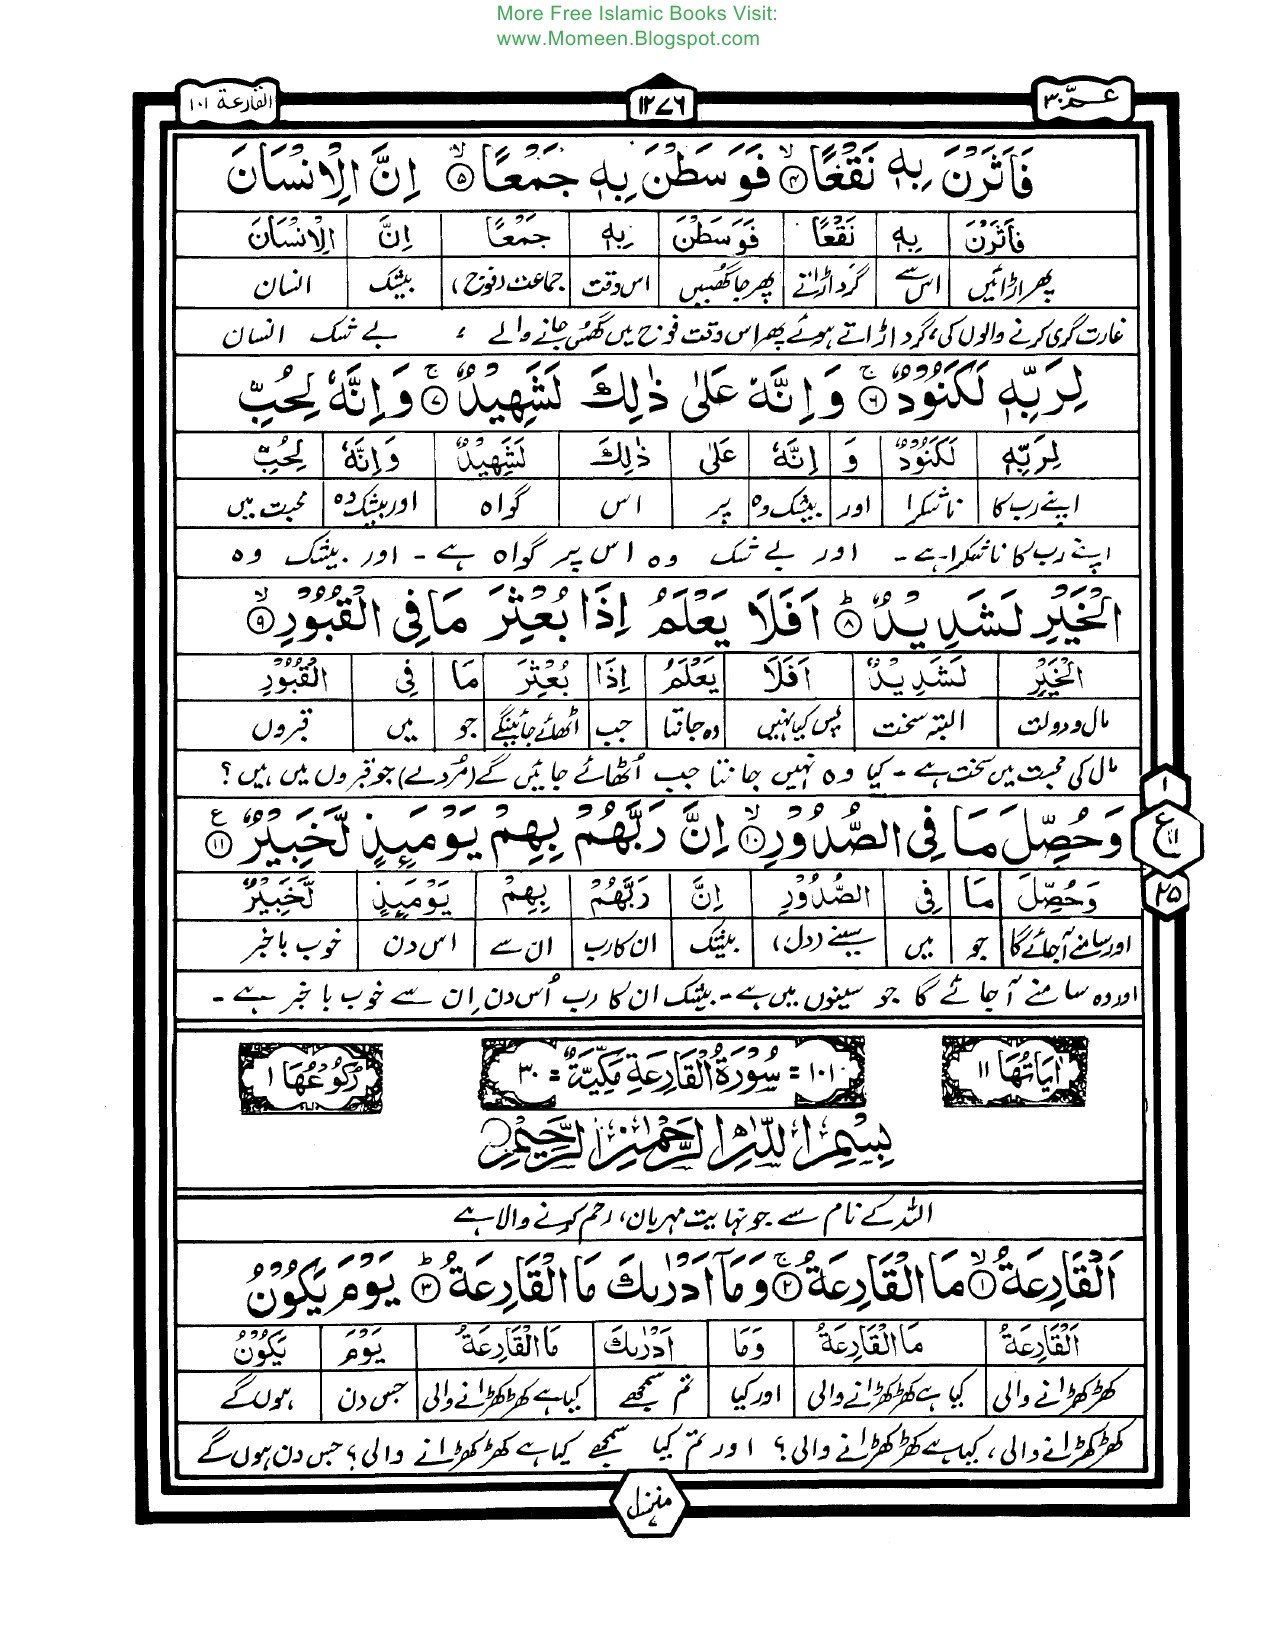 More Free Islamic Books Visit:
www.Momeen.Blogspot.com
عـمّ ٣٠
١٢٧٦
القارعة ١٠١
فَاَثَرْنَ بِهٖ نَقْعًا ۙ﴿۴﴾ فَوَسَطْنَ بِهٖ جَمْعًا ۙ﴿۵﴾ اِنَّ الْاِنْسَانَ
فَاَثَرْنَ بِهٖ نَقْعًا فَوَسَطْنَ بِهٖ جَمْعًا اِنَّ الْاِنْسَانَ
پھر اڑائیں اس سے گرد اڑاتے پھر جا گھسیں اس وقت جماعت (فوج) بیشک انسان
غارت گری کرنے والوں کی، گرد اڑاتے ہوئے پھر اس وقت فوج میں گھس جانے والے ، بے شک انسان
لِرَبِّهٖ لَكَنُوْدٌ ۚ﴿۶﴾ وَاِنَّهٗ عَلٰى ذٰلِكَ لَشَهِيْدٌ ۚ﴿۷﴾ وَاِنَّهٗ لِحُبِّ
لِرَبِّهٖ لَكَنُوْدٌ وَ اِنَّهٗ عَلٰى ذٰلِكَ لَشَهِيْدٌ وَاِنَّهٗ لِحُبِّ
اپنے رب کا ناشکرا اور بیشک وہ پر اس گواہ اور بیشک وہ محبت میں
اپنے رب کا ناشکرا ہے۔ اور بے شک وہ اس پر گواہ ہے۔ اور بیشک وہ
الْخَيْرِ لَشَدِيْدٌ ؕ﴿۸﴾ اَفَلَا يَعْلَمُ اِذَا بُعْثِرَ مَا فِى الْقُبُوْرِ ۙ﴿۹﴾
الْخَيْرِ لَشَدِيْدٌ اَفَلَا يَعْلَمُ اِذَا بُعْثِرَ مَا فِى الْقُبُوْرِ
مال و دولت البتہ سخت پس کیا نہیں وہ جانتا جب اٹھائے جائینگے جو میں قبروں
مال کی محبت میں سخت ہے۔ کیا وہ نہیں جانتا جب اُٹھائے جائیں گے (مُردے) جو قبروں میں ہیں؟
وَحُصِّلَ مَا فِى الصُّدُوْرِ ۙ﴿۱۰﴾ اِنَّ رَبَّهُمْ بِهِمْ يَوْمَئِذٍ لَّخَبِيْرٌ ﴿۱۱﴾ ع
وَحُصِّلَ مَا فِى الصُّدُوْرِ اِنَّ رَبَّهُمْ بِهِمْ يَوْمَئِذٍ لَّخَبِيْرٌ
اور سامنے آجائے گا جو میں سینے (دل) بیشک ان کا رب ان سے اس دن خوب باخبر
اور وہ سامنے آجائے گا جو سینوں میں ہے۔ بیشک ان کا رب اُس دن اِن سے خوب باخبر ہے۔
١
ع
١١
٢٥
اٰيَاتُهَا ١١
١٠١ = سُوْرَةُ الْقَارِعَةِ مَكِّيَّةٌ = ٣٠
رُكُوْعُهَا ١
بِسْمِ اللّٰهِ الرَّحْمٰنِ الرَّحِيْمِ
اللہ کے نام سے جو نہایت مہربان، رحم کرنے والا ہے
اَلْقَارِعَةُ ۙ﴿۱﴾ مَا الْقَارِعَةُ ۚ﴿۲﴾ وَمَاۤ اَدْرٰىكَ مَا الْقَارِعَةُ ؕ﴿۳﴾ يَوْمَ يَكُوْنُ
اَلْقَارِعَةُ مَا الْقَارِعَةُ وَمَا اَدْرٰىكَ مَا الْقَارِعَةُ يَوْمَ يَكُوْنُ
کھڑکھڑانے والی کیا ہے کھڑکھڑانے والی اور کیا تم سمجھے کیا ہے کھڑکھڑانے والی جس دن ہوں گے
کھڑکھڑانے والی، کیا ہے کھڑکھڑانے والی؟ اور تم کیا سمجھے کیا ہے کھڑکھڑانے والی؟ جس دن ہوں گے
منزل ٧